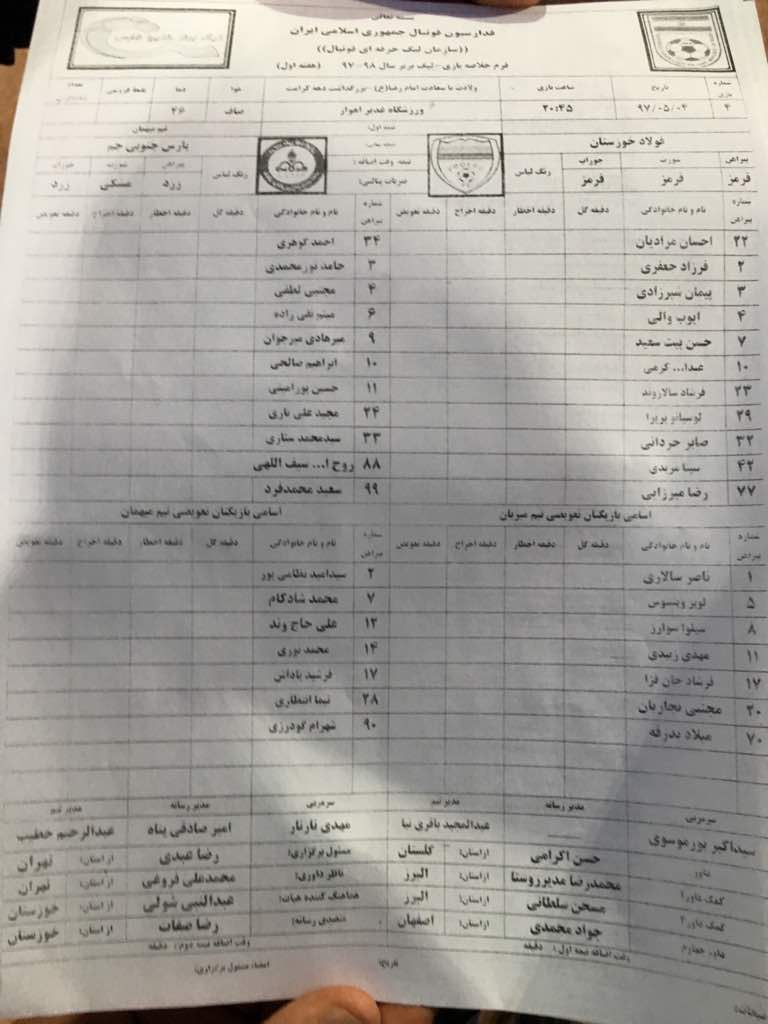 بسمه تعالی
فدراسیون فوتبال جمهوری اسلامی ایران
((سازمان لیگ حرفه ای فوتبال))
فرم خلاصه بازی - لیگ برتر سال ۹۸-۹۷ (هفته اول)
شماره بازی تاریخ ساعت بازی ولادت با سعادت امام رضا(ع) -بزرگداشت دهه کرامت هوا دما
۴ ۹۷/۰۵/۰۴ ۲۰:۴۵ ورزشگاه غدیر اهواز صاف ۴۶
فولاد خوزستان نیمه اول: تیم میهمان
پارس جنوبی جم
پیراهن شورت جوراب رنگ لباس وقت اضافه: رنگ لباس پیراهن شورت جوراب
قرمز قرمز قرمز ضربات پنالتی: زرد مشکی زرد
شماره پیراهن نام و نام خانوادگی دقیقه گل دقیقه اخطار دقیقه اخراج دقیقه تعویض شماره پیراهن نام و نام خانوادگی دقیقه گل دقیقه اخطار دقیقه اخراج دقیقه تعویض
۲۲ احسان مرادیان ۳۴ احمد گوهری
۲ فرزاد جعفری ۳ حامد نورمحمدی
۳ پیمان شیرزادی ۴ مجتبی لطفی
۴ ایوب والی ۶ میثم تقی زاده
۷ حسن بیت سعید ۹ میرهادی میرجوان
۱۰ عبدا... کرمی ۱۰ ابراهیم صالحی
۲۳ فرشاد سالاروند ۱۱ حسین پورامینی
۲۹ لوسیانو پریرا ۲۴ مجید علی یاری
۳۲ صابر حردانی ۳۳ سیدمحمد ستاری
۴۲ سینا مریدی ۸۸ روح ا... سیف اللهی
۷۷ رضا میرزایی ۹۹ سعید محمدفرد
اسامی بازیکنان تعویضی تیم میزبان اسامی بازیکنان تعویضی تیم میهمان
شماره پیراهن نام و نام خانوادگی دقیقه گل دقیقه اخطار دقیقه اخراج دقیقه تعویض شماره پیراهن نام و نام خانوادگی دقیقه گل دقیقه اخطار دقیقه اخراج دقیقه تعویض
۱ ناصر سالاری ۲ سیدامید نظامی پور
۵ لوپز وینسوس ۷ محمد شادکام
۸ سیلوا سوارز ۱۲ علی حاج وند
۱۱ مهدی زبیدی ۱۴ محمد نوری
۱۷ فرشاد جان فزا ۱۷ فرشید باداش
۲۰ مجتبی نجاریان ۲۸ نیما انتظاری
۷۰ میلاد بدرقه ۹۰ شهرام گودرزی
سرمربی مدیر رسانه مدیر تیم سرمربی مدیر رسانه مدیر تیم
سیداکبر پورموسوی عبدالمجید باقری نیا مهدی تارتار امیر صادقی پناه عبدالرحیم خطیب
داور حسن اکرامی از استان: گلستان مسئول برگزاری: رضا عبدی از استان: تهران
کمک داور۱ محمدرضا مدیرروستا از استان: البرز ناظر داوری: محمدعلی فروغی از استان: تهران
کمک داور۲ مسخن سلطانی از استان: البرز هماهنگ کننده هیات: عبدالنبی شولی از استان: خوزستان
داور چهارم جواد محمدی از استان: اصفهان متصدی رسانه: رضا صفات از استان: خوزستان
وقت اضافه نیمه اول: دقیقه وقت اضافه نیمه دوم: دقیقه
امضاء مسئول برگزاری: